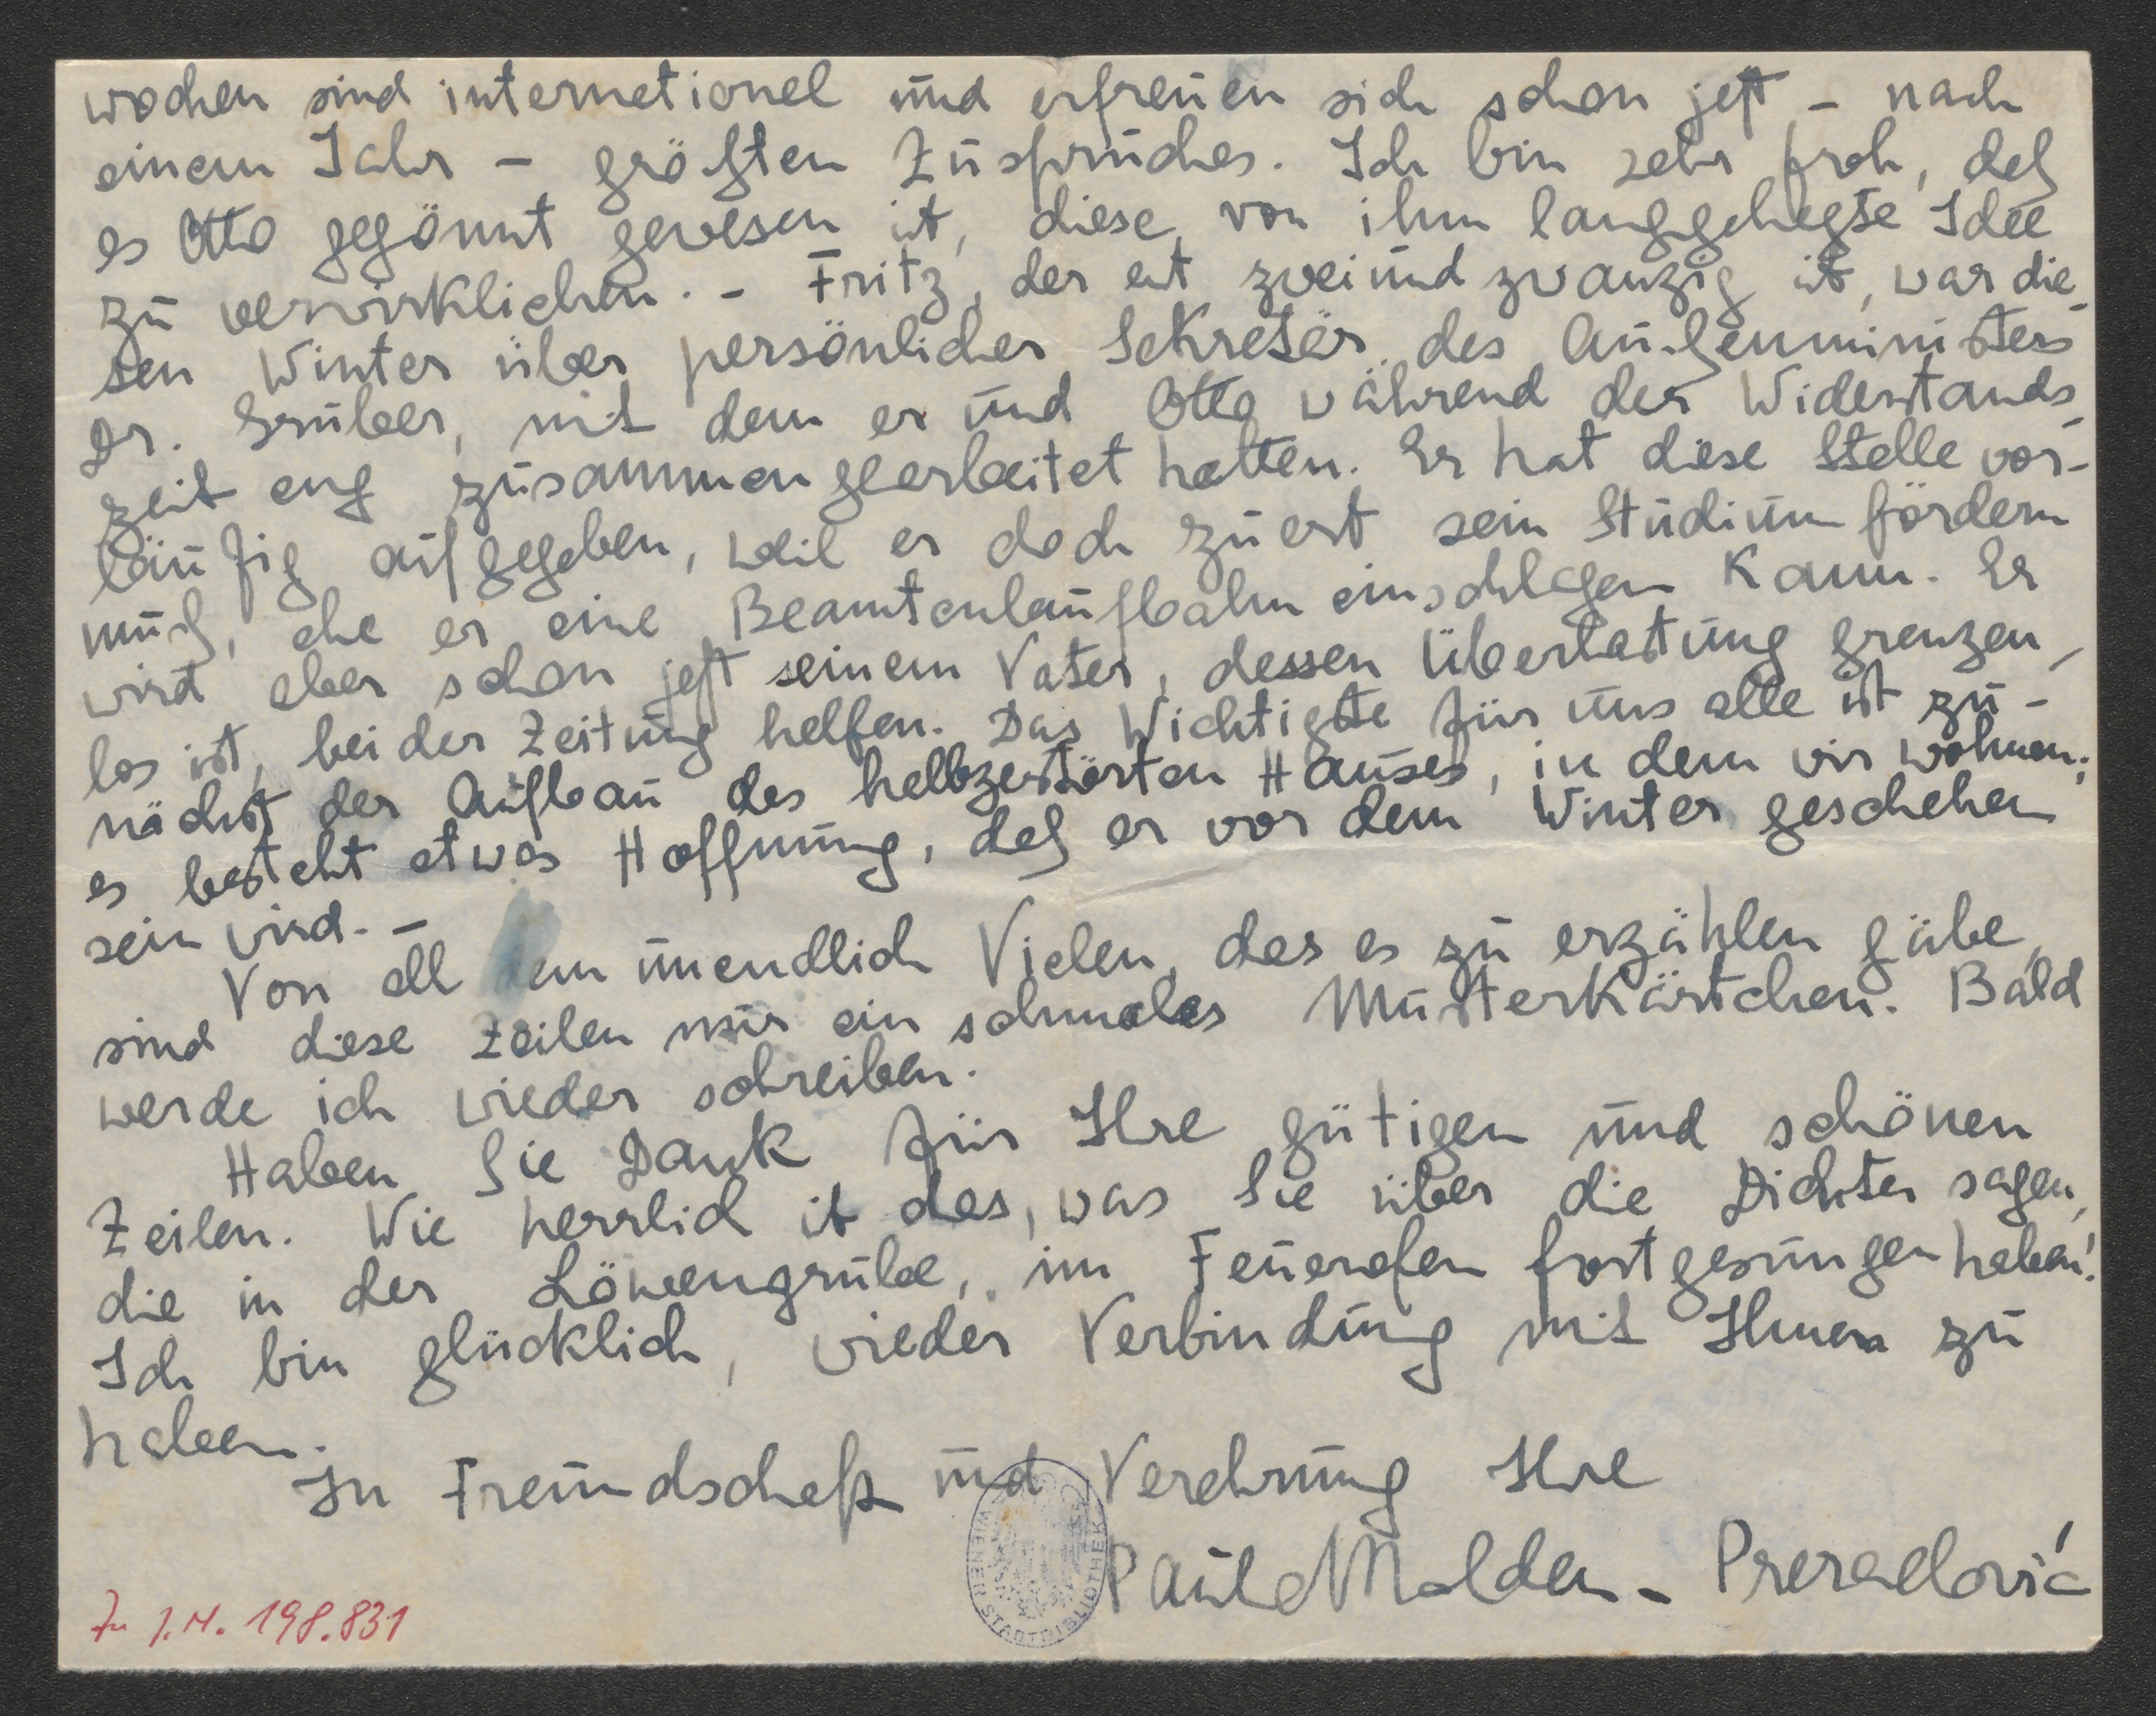 wochen sind international und erfreuen sich schon jetzt – nach
einem Jahr – größten Zuspruches. Ich bin sehr froh, daß
es Otto gegönnt gewesen ist, diese von ihm langgehegte Idee
zu verwirklichen. – Fritz, der erst zweiundzwanzig ist, war die-
sen Winter über persönlicher Sekretär des Außenministers
Dr. Gruber, mit dem er und Otto während der Widerstands-
zeit eng zusammengearbeitet hatten. Er hat diese Stelle vor-
läufig aufgegeben, weil er doch zuerst sein Studium fördern
muß, ehe er eine Beamtenlaufbahn einschlagen kann. Er
wird aber schon jetzt seinem Vater, dessen Überlastung grenzen-
los ist, bei der Zeitung helfen. Das Wichtigste für uns alle ist zu-
nächst der Aufbau des halbzerstörten Hauses, in dem wir wohnen;
es besteht etwas Hoffnung, daß er vor dem Winter geschehen
sein wird. –
Von all dem unendlich Vielen, das es zu erzählen gäbe,
sind diese Zeilen nur ein schmales Musterkärtchen. Bald
werde ich wieder schreiben.
Haben Sie Dank für Ihre gütigen und schönen
Zeilen. Wie herrlich ist das, was Sie über die Dichter sagen,
die in der Löwengrube, im Feuerofen fortgesungen haben!
Ich bin glücklich, wieder Verbindung mit Ihnen zu
haben.
In Freundschaft und Verehrung Ihre
Paula Molden-Preradović
WIENER STADTBIBLIOTHEK
Zu J.N. 198.831